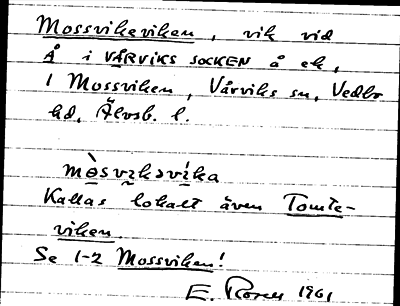 Mossvikeviken, vik vid
Å i VÅRVIKS SOCKEN å ek,
1 Mossviken, Vårviks sn, Vedbo
hd, Älvsb. l.
mòsvikəvíka
Kallas lokalt även Tomte-
viken.
Se 1-2 Mossviken!
E. 1961